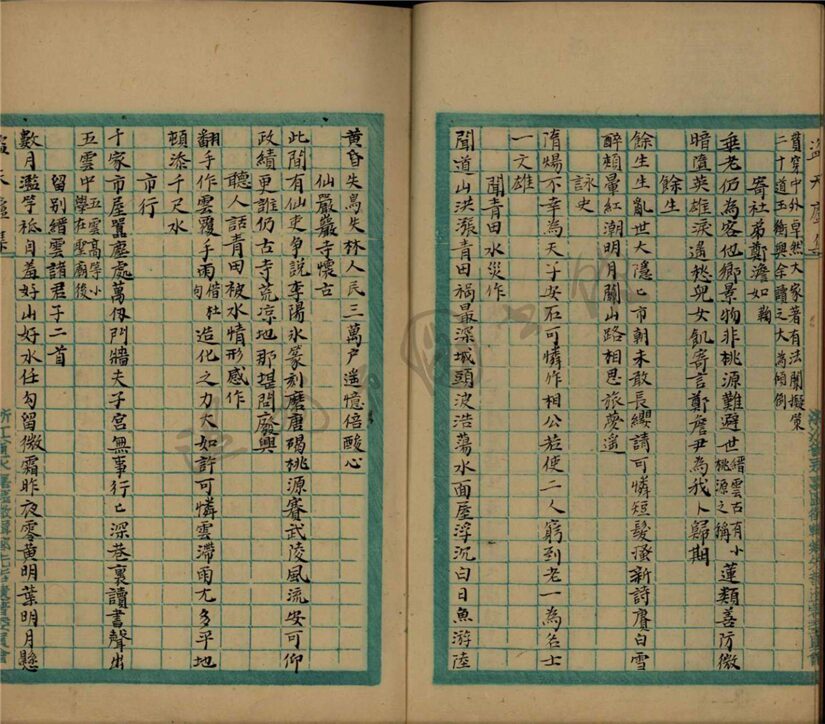 貫穿中外卓然大家著有法闡擬策
二十道玉衡與余讀之大為傾倒
寄社弟鄭澹如翰
垂老仍為客他鄉景物非桃源難避世縉雲古有小桃源之稱蓮類善防微
暗墮英雄淚遥愁兒女飢寄言鄭詹尹為我卜歸期
餘生
餘生生亂世大隱隱市朝未敢長纓請可憐短髮搔新詩賡白雪
醉頰暈紅潮明月關山路相思旅夢遥
詠史
隋煬不幸為天子安石可憐作相公若使二人窮到老一為名士
一文雄
聞青田水災作
聞道山洪漲青田禍最深城頭波浩蕩水面屋浮沉白日魚游陸
黄昏鳥失林人民三萬户遥憶倍酸心
仙巖巖寺懷古
此間有仙吏争說李陽冰篆刻磨唐碣桃源賽武陵風流安可仰
政績更誰仍古寺荒凉地那堪問廢興
聽人話青田被水情形感作
翻手作雲覆手雨借杜句造化之力大如許可憐雲滯雨尤多平地
頓添千尺水
市行
千家市屋囂塵處萬仭門牆夫子宮無事行行深巷裏讀書聲出
五雲中五雲高等小學在聖廟後
留別縉雲諸君子二首
數月濫竽祗自羞好山好水任勾留微霜昨夜零黄葉明月懸